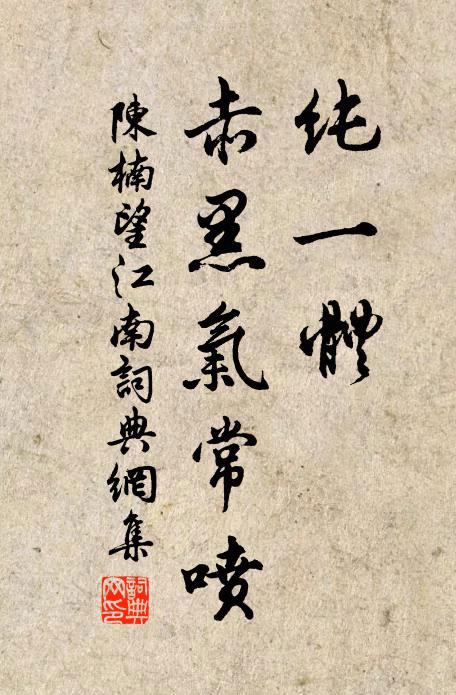 純一體
赤黑氣常噴
陳楠望江南詞典網集
詞典網印